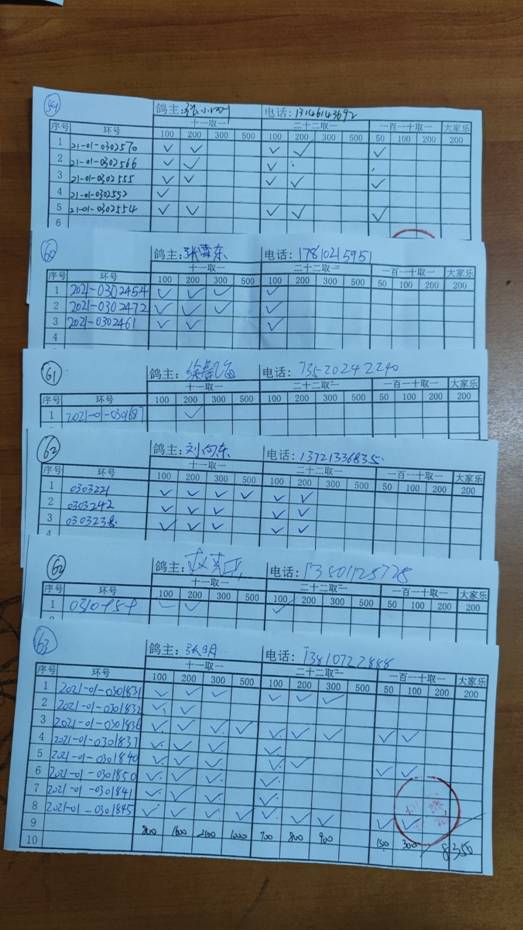 鸽主: 电话: 13146143692
序号 环号 十一取一 二十二取一 一百一十取一 大家乐
100 200 300 500 100 200 300 500 50 100 200 200
1 21-01-0302570 ✓ ✓ ✓ ✓ ✓
2 21-01-0302566 ✓ ✓ ✓
3 21-01-0302555 ✓ ✓ ✓ ✓ ✓
4 21-01-0302552 ✓
5 21-01-0302554 ✓ ✓ ✓ ✓ ✓
6
60 鸽主: 电话: 17810215951
序号 环号 十一取一 二十二取一 一百一十取一 大家乐
100 200 300 500 100 200 300 500 50 100 200 200
1 2021-0302454 ✓ ✓ ✓ ✓
2 2021-0302472 ✓ ✓ ✓ ✓
3 2021-0302461 ✓ ✓ ✓
61 鸽主: 电话:
序号 环号 十一取一 二十二取一 一百一十取一 大家乐
100 200 300 500 100 200 300 500 50 100 200 200
1 ✓
62 鸽主: 刘向东 电话: 13721336835
序号 环号 十一取一 二十二取一 一百一十取一 大家乐
100 200 300 500 100 200 300 500 50 100 200 200
1 0303221 ✓ ✓ ✓ ✓ ✓ ✓
2 0303242 ✓ ✓ ✓ ✓ ✓
3 ✓ ✓ ✓ ✓ ✓
62 鸽主: 电话: 13501125728
序号 环号 十一取一 二十二取一 一百一十取一 大家乐
100 200 300 500 100 200 300 500 50 100 200 200
1 ✓ ✓ ✓
63 鸽主: 电话:
序号 环号 十一取一 二十二取一 一百一十取一 大家乐
100 200 300 500 100 200 300 500 50 100 200 200
1 2021-01-0301831 ✓ ✓ ✓ ✓ ✓ ✓
2 2021-01-0301832 ✓ ✓
3 2021-01-0301836 ✓ ✓ ✓ ✓ ✓ ✓ ✓
4 2021-01-0301837 ✓ ✓ ✓ ✓ ✓ ✓
5 2021-01-0301840 ✓ ✓ ✓ ✓ ✓
6 2021-01-0301850 ✓ ✓ ✓ ✓ ✓ ✓
7 2021-01-0301841 ✓ ✓ ✓ ✓
8 2021-01-0301845 ✓ ✓ ✓ ✓ ✓ ✓ ✓
9 ✓ ✓
10 800 1600 2100 1000 700 800 900 150 300 8350